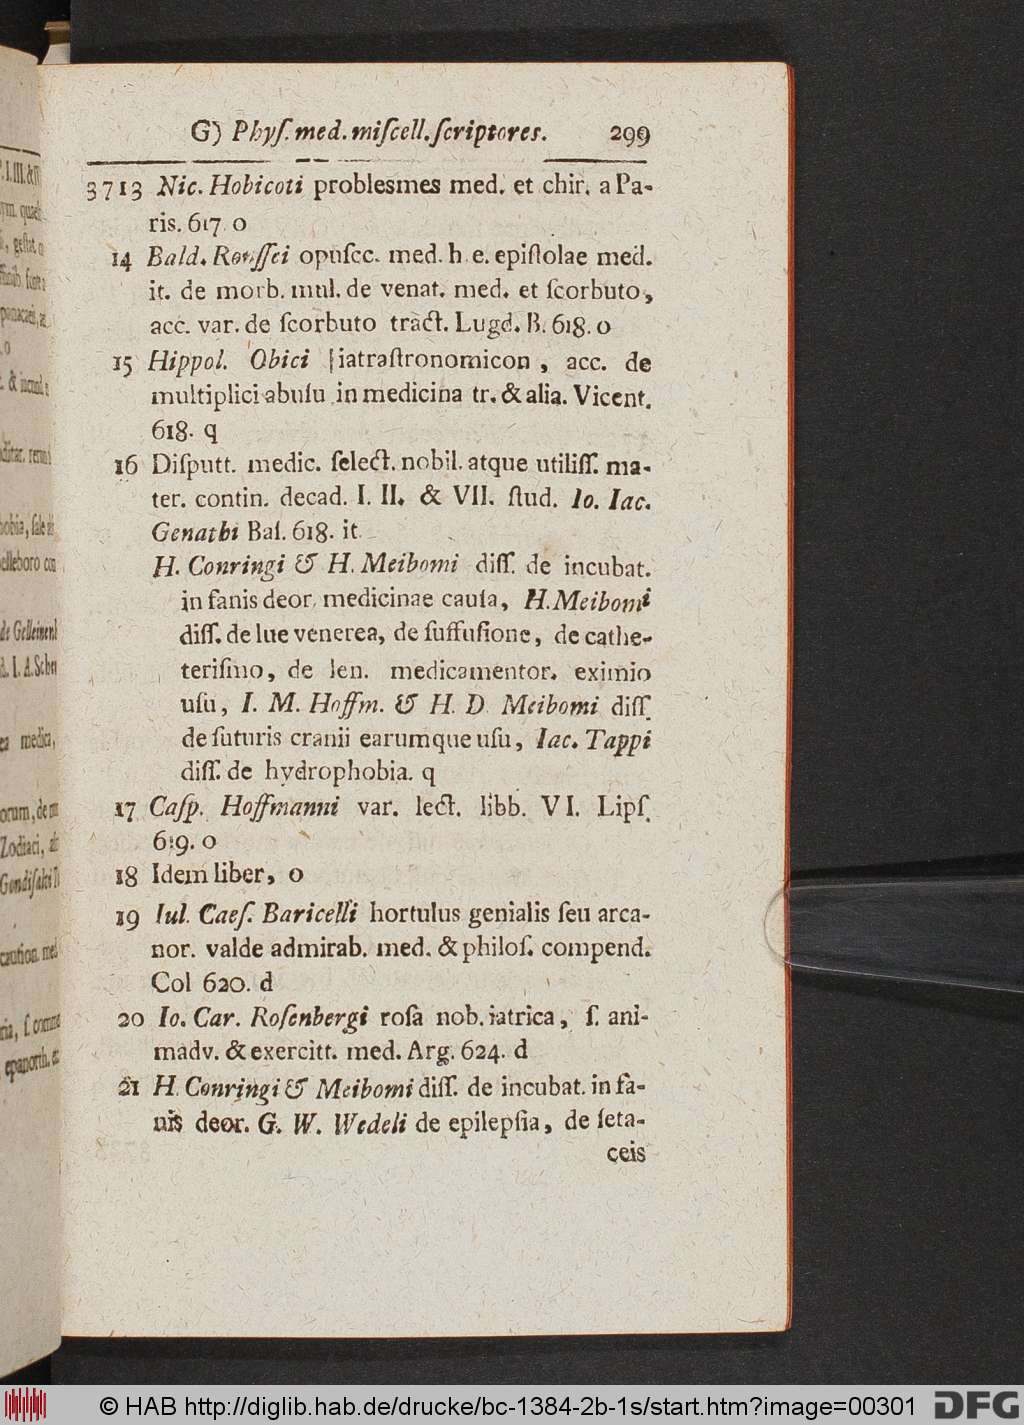 G) Phyſ. med. miſcell. ſcriptores. 299
3713 Nic. Hobicoti problesmes med. et chir. a Pa-
ris. 617. o
14 Bald. Ronſſei opuſcc. med. h. e. epiſtolae med.
it. de morb. mul. de venat. med. et ſcorbuto,
acc. var. de ſcorbuto tract. Lugd. B. 618. o
15 Hippol. Obici iatraſtronomicon, acc. de
multiplici abuſu in medicina tr. & alia. Vicent.
618. q
16 Diſputt. medic. ſelect. nobil. atque utiliſſ. ma-
ter. contin. decad. I. II. & VII. ſtud. Io. Iac.
Genathi Baſ. 618. it
H. Conringi & H. Meibomi diſſ. de incubat.
in fanis deor. medicinae cauſa, H. Meibomi
diſſ. de lue venerea, de ſuffuſione, de cathe-
teriſmo, de ſen. medicamentor. eximio
uſu, I. M. Hoffm. & H. D. Meibomi diſſ.
de ſuturis cranii earumque uſu, Iac. Tappi
diſſ. de hydrophobia. q
17 Caſp. Hoffmanni var. lect. libb. VI. Lipſ.
619. o
18 Idem liber, o
19 Iul. Caeſ. Baricelli hortulus genialis ſeu arca-
nor. valde admirab. med. & philoſ. compend.
Col 620. d
20 Io. Car. Roſenbergi roſa nob. iatrica, ſ. ani-
madv. & exercitt. med. Arg. 624. d
21 H. Conringi & Meibomi diſſ. de incubat. in fa-
nis deor. G. W. Wedeli de epilepſia, de ſeta-
ceis
© HAB http://diglib.hab.de/drucke/bc-1384-2b-1s/start.htm?image=00301 DFG